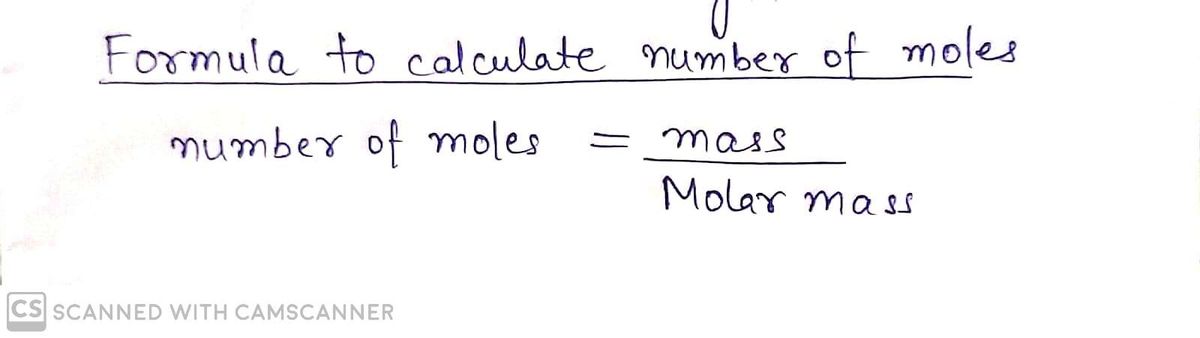 Formula to calculate number of moles
number of moles = mass
Molar mass
CS SCANNED WITH CAMSCANNER